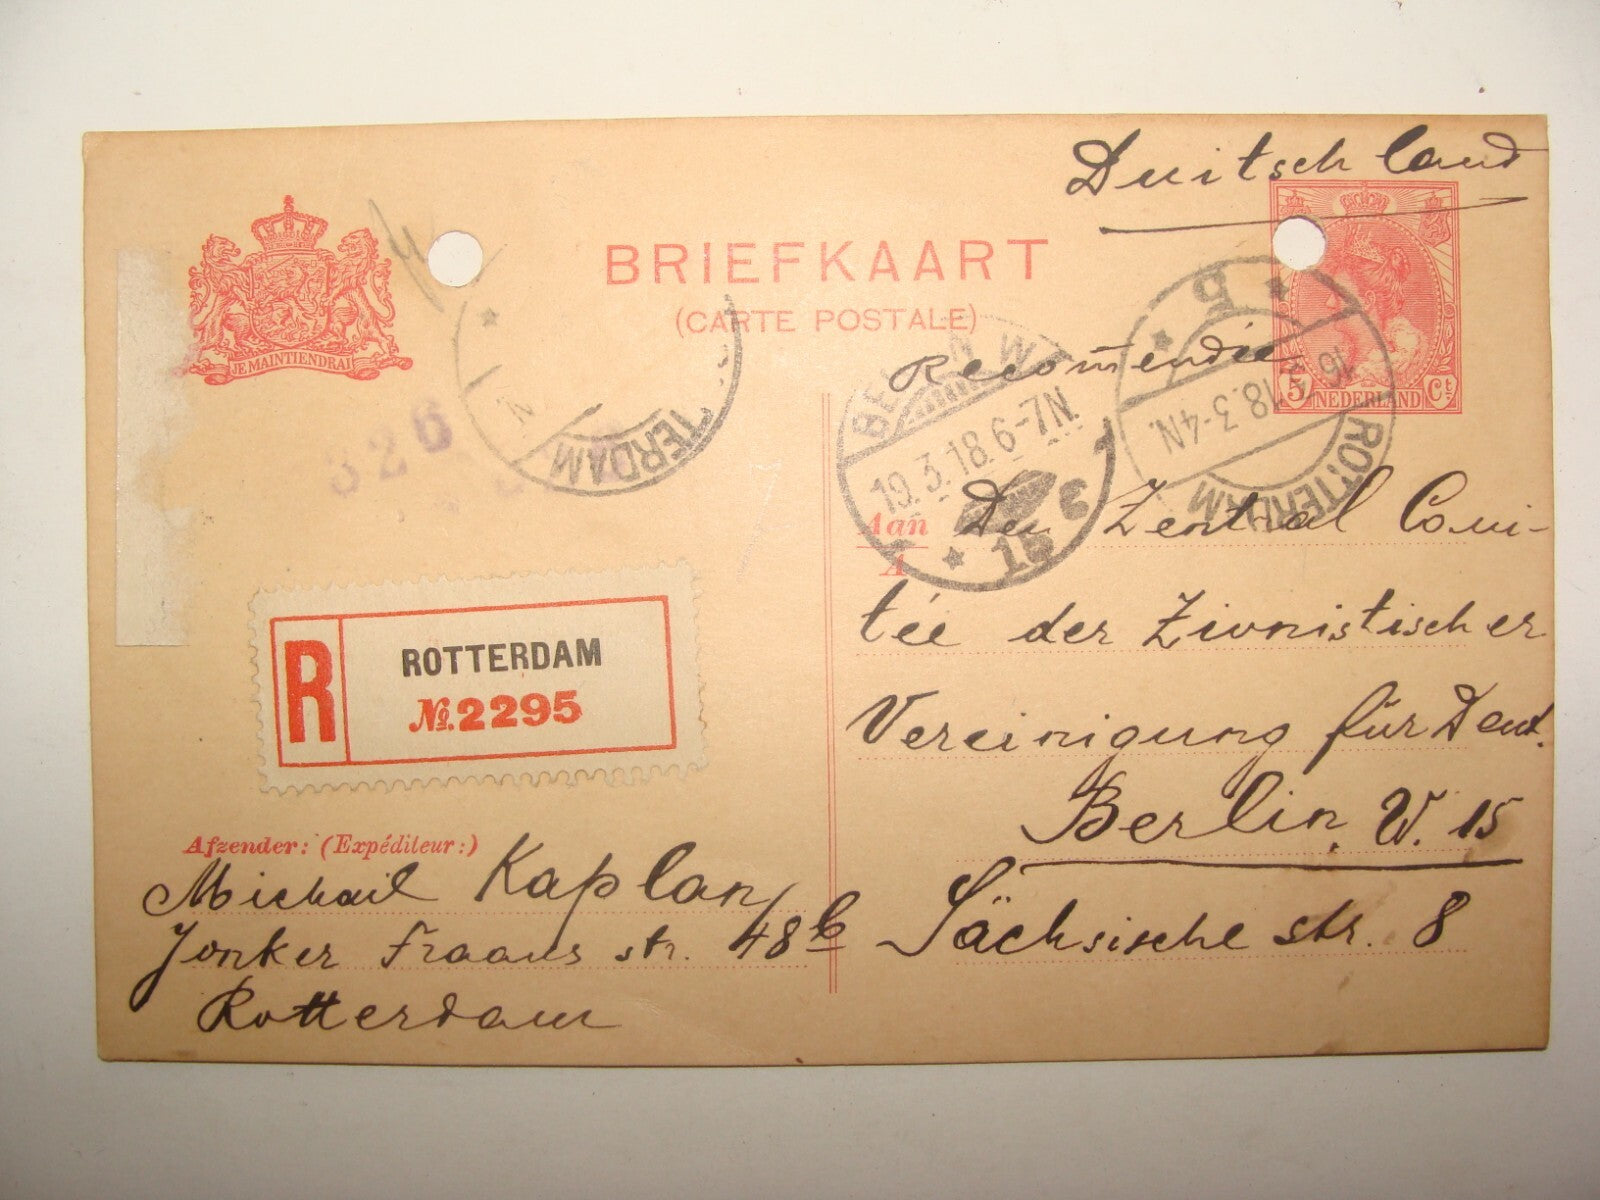 Duitschland
JE MAINTIENDRAI
BRIEFKAART
(CARTE POSTALE)
Recom̄endée
5 NEDERLAND Ct
ROTTERDAM
16 3 18. 3-4N.
BERLIN W
19.3.18. 6-7N.
* 15 c
TERDAM
326
Aan
A
Den Zentral Comi-
tée der Zionistischer
Vereinigung für Deut.
Berlin, W. 15
Sächsische str. 8
R
ROTTERDAM
№.2295
Afzender: (Expéditeur:)
Michail Kaplan
Jonker Fraans str. 48b
Rotterdam